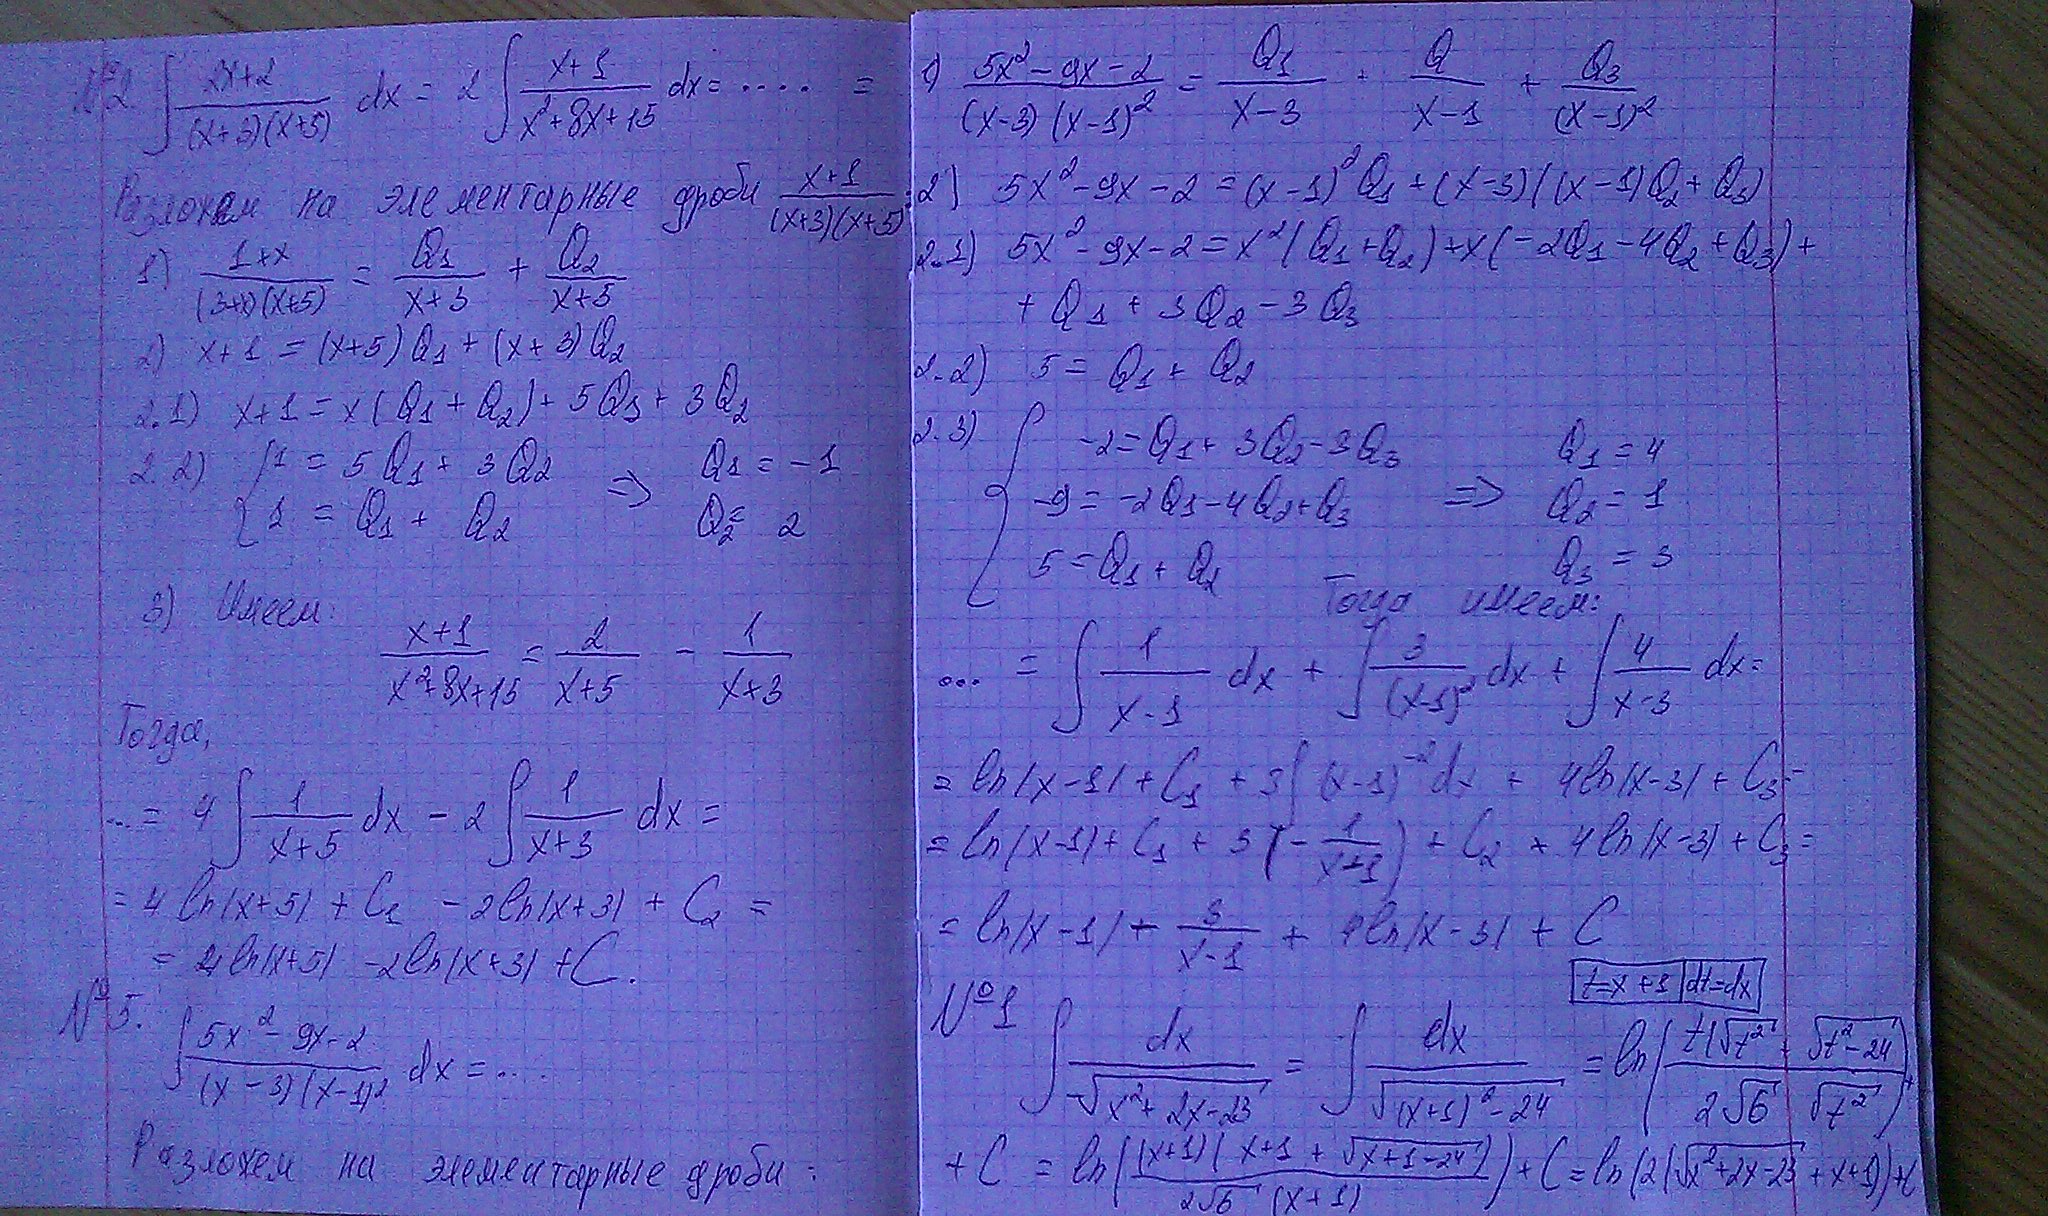 №2. ∫ (2x+2)/((x+3)(x+5)) dx = 2 ∫ (x+1)/(x²+8x+15) dx = .... =
Разложем на элементарные дроби (x+1)/((x+3)(x+5)):
1) (1+x)/((3+x)(x+5)) = Q₁/(x+3) + Q₂/(x+5)
2) x+1 = (x+5)Q₁ + (x+3)Q₂
2.1) x+1 = x(Q₁+Q₂) + 5Q₁ + 3Q₂
2.2) { 1 = 5Q₁ + 3Q₂ ⇒ Q₁ = -1
1 = Q₁ + Q₂ Q₂ = 2
3) Имеем:
(x+1)/(x²+8x+15) = 2/(x+5) - 1/(x+3)
Тогда,
... = 4 ∫ 1/(x+5) dx - 2 ∫ 1/(x+3) dx =
= 4 ln|x+5| + C₁ - 2ln|x+3| + C₂ =
= 4ln|x+5| - 2ln|x+3| + C.
№5. ∫ (5x²-9x-2)/((x-3)(x-1)²) dx = ...
Разложем на элементарные дроби:
1) (5x²-9x-2)/((x-3)(x-1)²) = Q₁/(x-3) + Q/(x-1) + Q₃/(x-1)²
2) 5x²-9x-2 = (x-1)²Q₁ + (x-3)((x-1)Q₂ + Q₃)
2.1) 5x²-9x-2 = x²(Q₁+Q₂) + x(-2Q₁-4Q₂+Q₃) +
+ Q₁ + 3Q₂ - 3Q₃
2.2) 5 = Q₁ + Q₂
2.3) { -2 = Q₁ + 3Q₂ - 3Q₃ Q₁ = 4
-9 = -2Q₁ - 4Q₂ + Q₃ ⇒ Q₂ = 1
5 = Q₁ + Q₂ Q₃ = 3
Тогда имеем:
... = ∫ 1/(x-1) dx + ∫ 3/(x-1)² dx + ∫ 4/(x-3) dx =
= ln|x-1| + C₁ + 3∫(x-1)⁻² dx + 4ln|x-3| + C₃ =
= ln|x-1| + C₁ + 3(-1/(x-1)) + C₂ + 4ln|x-3| + C₃ =
= ln|x-1| - 3/(x-1) + 4ln|x-3| + C
t=x+1 | dt=dx
№1 ∫ dx/√(x²+2x-23) = ∫ dx/√((x+1)²-24) = ln( t(√t² + √(t²-24))/(2√6 √t²) ) +
+ C = ln( (x+1)(x+1+√(x+1-24))/(2√6 (x+1)) ) + C = ln(2(√(x²+2x-23) + x+1)) + C